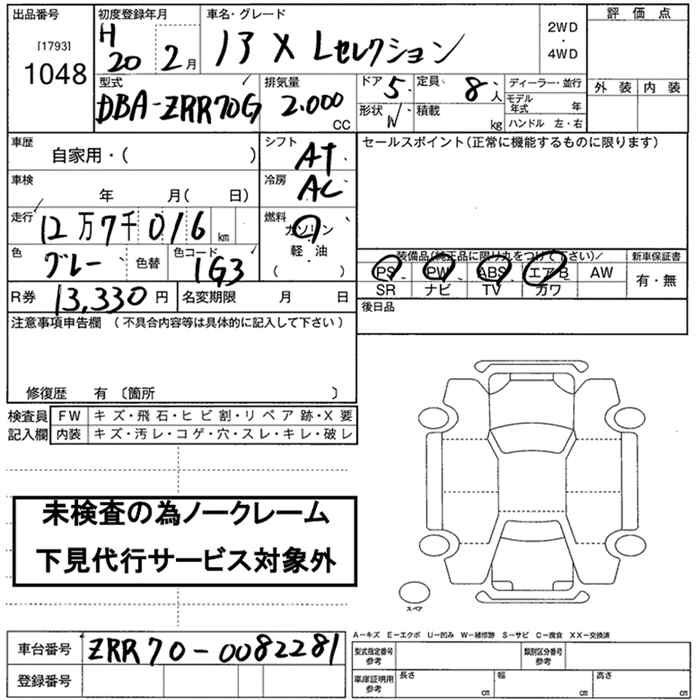 出品番号 初度登録年月 車名・グレード 評価点
[1793]
1048
H 20年 2月
ノア X Lセレクション
2WD
・
4WD
外装 内装
型式 排気量 ドア 5 定員 8人 ディーラー・並行
DBA-ZRR70G 2.000 CC
形状 W 積載 kg
モデル年式 年
ハンドル 左・右
車歴 シフト セールスポイント(正常に機能するものに限ります)
自家用・( ) AT
車検 冷房
年 月( 日) AC
走行 燃料
12万7千016km ガソリン・軽油
色 色替 色コード ( )
グレー 1G3
装備品(純正品に限り丸をつけて下さい) 新車保証書
PS PW ABS エアB AW 有・無
SR ナビ TV カワ
R券 13,330円 名変期限 月 日
後日品
注意事項申告欄 (不具合内容等は具体的に記入して下さい)
修復歴 有 〔箇所 〕
検査員 FW キズ・飛石・ヒビ割・リペア跡・X要
記入欄 内装 キズ・汚レ・コゲ・穴・スレ・キレ・破レ
未検査の為ノークレーム
下見代行サービス対象外
スペア
A−キズ E−エクボ U−凹み W−補修跡 S−サビ C−腐食 XX−交換済
車台番号 ZRR70-0082281
型式指定番号 参考 類別区分番号 参考
登録番号
車庫証明用 参考 長さ cm 幅 cm 高さ cm